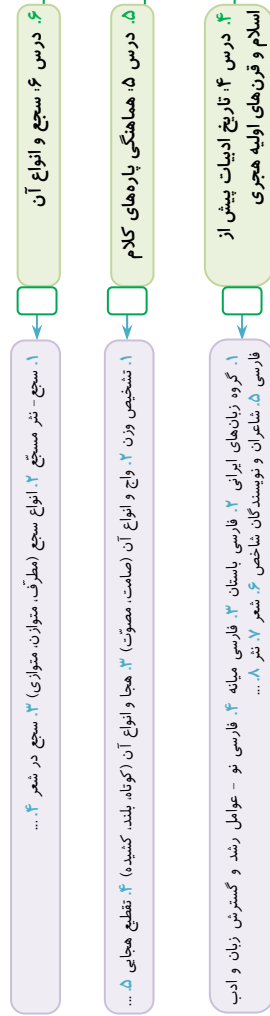 ۴. درس ۴: تاریخ ادبیات پیش از
اسلام و قرن‌های اولیه هجری
۱. گروه زبان‌های ایرانی ۲. فارسی باستان ۳. فارسی میانه ۴. فارسی نو - عوامل رشد و گسترش زبان و ادب
فارسی ۵. شاعران و نویسندگان شاخص ۶. شعر ۷. نثر ۸. ...
۵. درس ۵: هماهنگی پاره‌های کلام
۱. تشخیص وزن ۲. واج و انواع آن (صامت، مصوّت) ۳. هجا و انواع آن (کوتاه، بلند، کشیده) ۴. تقطیع هجایی ۵. ...
۶. درس ۶: سجع و انواع آن
۱. سجع - نثر مسجّع ۲. انواع سجع (مطرّف، متوازن، متوازی) ۳. سجع در شعر ۴. ...